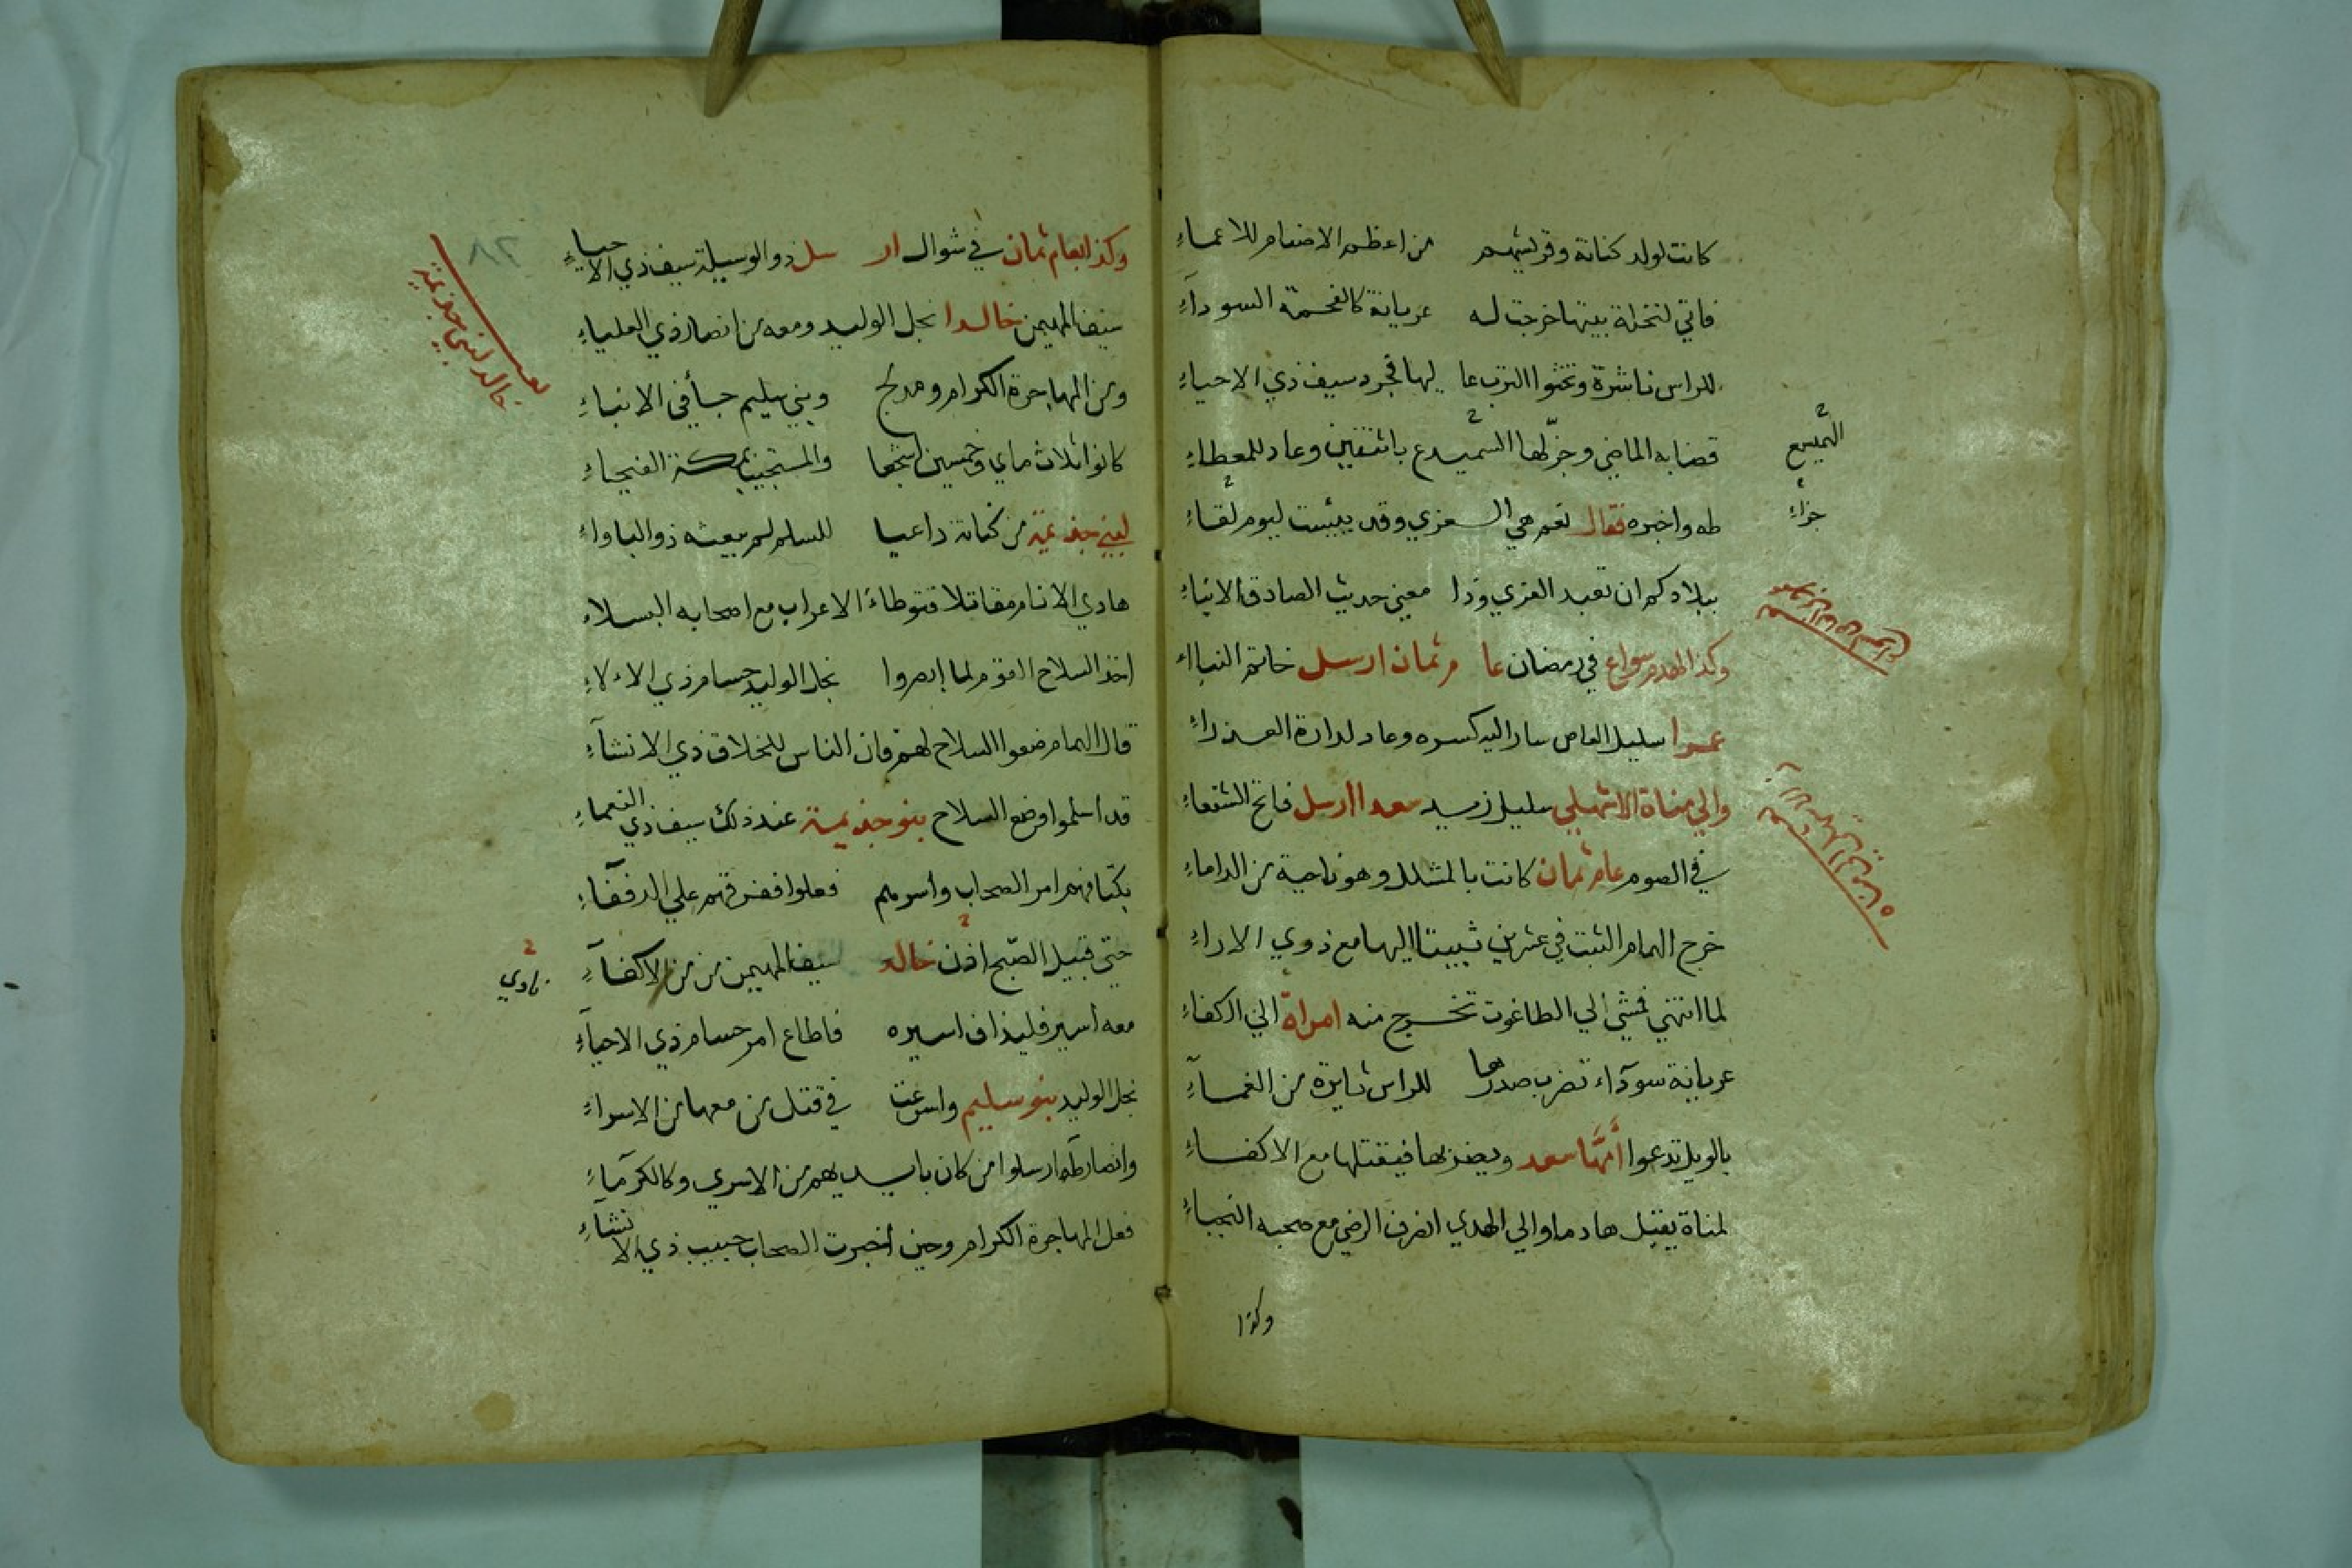 كانت لولد كنانة وقريشهم من اعظم الاصنام للاعماء
فاتي لنخلة بيتها خرجت له عريانة كالفحمة السوداء
للراس ناشرة وتحثوا الترب عا ليها فجرد سيف ذي الاحياء
قضابه الماضي وجزلها السميدع باثنتين وعاد للمعطاء
الهميسع
طه واخبره فقال نعم هي العزي وقد يئست ليوم لقاء
جزاء
ببلادكم ان تعبد العزي وذا معني حديث الصادق الانباء
وكذا لهدم سواع في رمضان عا م ثمان ارسل خاتم النباء
عمرا سليل العاص سار اليه كسره وعاد لدارة العذراء
والي مناة الاشهلي سليل زيد سعدا ارسل فاتح الشفعاء
في الصوم عام ثمان كانت بالمشلل وهو ناحية من الداماء
خرج الهمام الثبت في عشرين ثبيتا اليها مع ذوي الاراء
لما انتهي فمشي الي الطاغوت تخرج منه امراة الي الاكفاء
عريانة سوداء تضرب صدرها للراس ثايرة من الغماء
بالويل تدعوا أمها سعد ويضربها فيقتلها مع الاكفاء
لمناة يقتل هادما والي الهدي انصرف الرضي مع صحبه النجباء
وكذا
وكذا لعام ثمان في شوال ار سل ذو الوسيلة سيف ذي الاحياء
٨٢
خالد لبني جذيمة
سيف المهيمن خالدا نجل الوليد ومعه من انصار ذي العلياء
ومن المهاجرة الكرام ومدلج وبني سليم جا في الانباء
كانوا ثلاث ماي وخمسين اشجعا والمستجيب بمكة الفيحاء
لبني جذيمة من كنانة داعيا للسلم لم يبعثه ذو الباواء
هادي الانام مقاتلا فتوطاء الاعراب مع اصحابه البسلاء
اخذ السلاح القوم لما ابصروا نجل الوليد حسام ذي الالاء
قال الهمام ضعوا السلاح لهم فان الناس للخلاق ذي الانشآء
قد اسلموا فوضع السلاح بنو جذيمة عند ذلك سيف ذي النعماء
بكتافهم امر الصحاب واسرهم فعلوا ففرقهم علي الرفقاء
حتي قبيل الصبح اذن خالد سيف المهيمن من من الاكفآء
نادي
معه اسير فليذاف اسيره فاطاع امر حسام ذي الاحيآء
نجل الوليد بنو سليم واسرعت في قتل من معها من الاسراء
وانصار طه ارسلوا من كان بايديهم من الاسري وكالكرمآء
فعل المهاجرة الكرام وحين أخبرت الصحاب حبيب ذي الانشآء